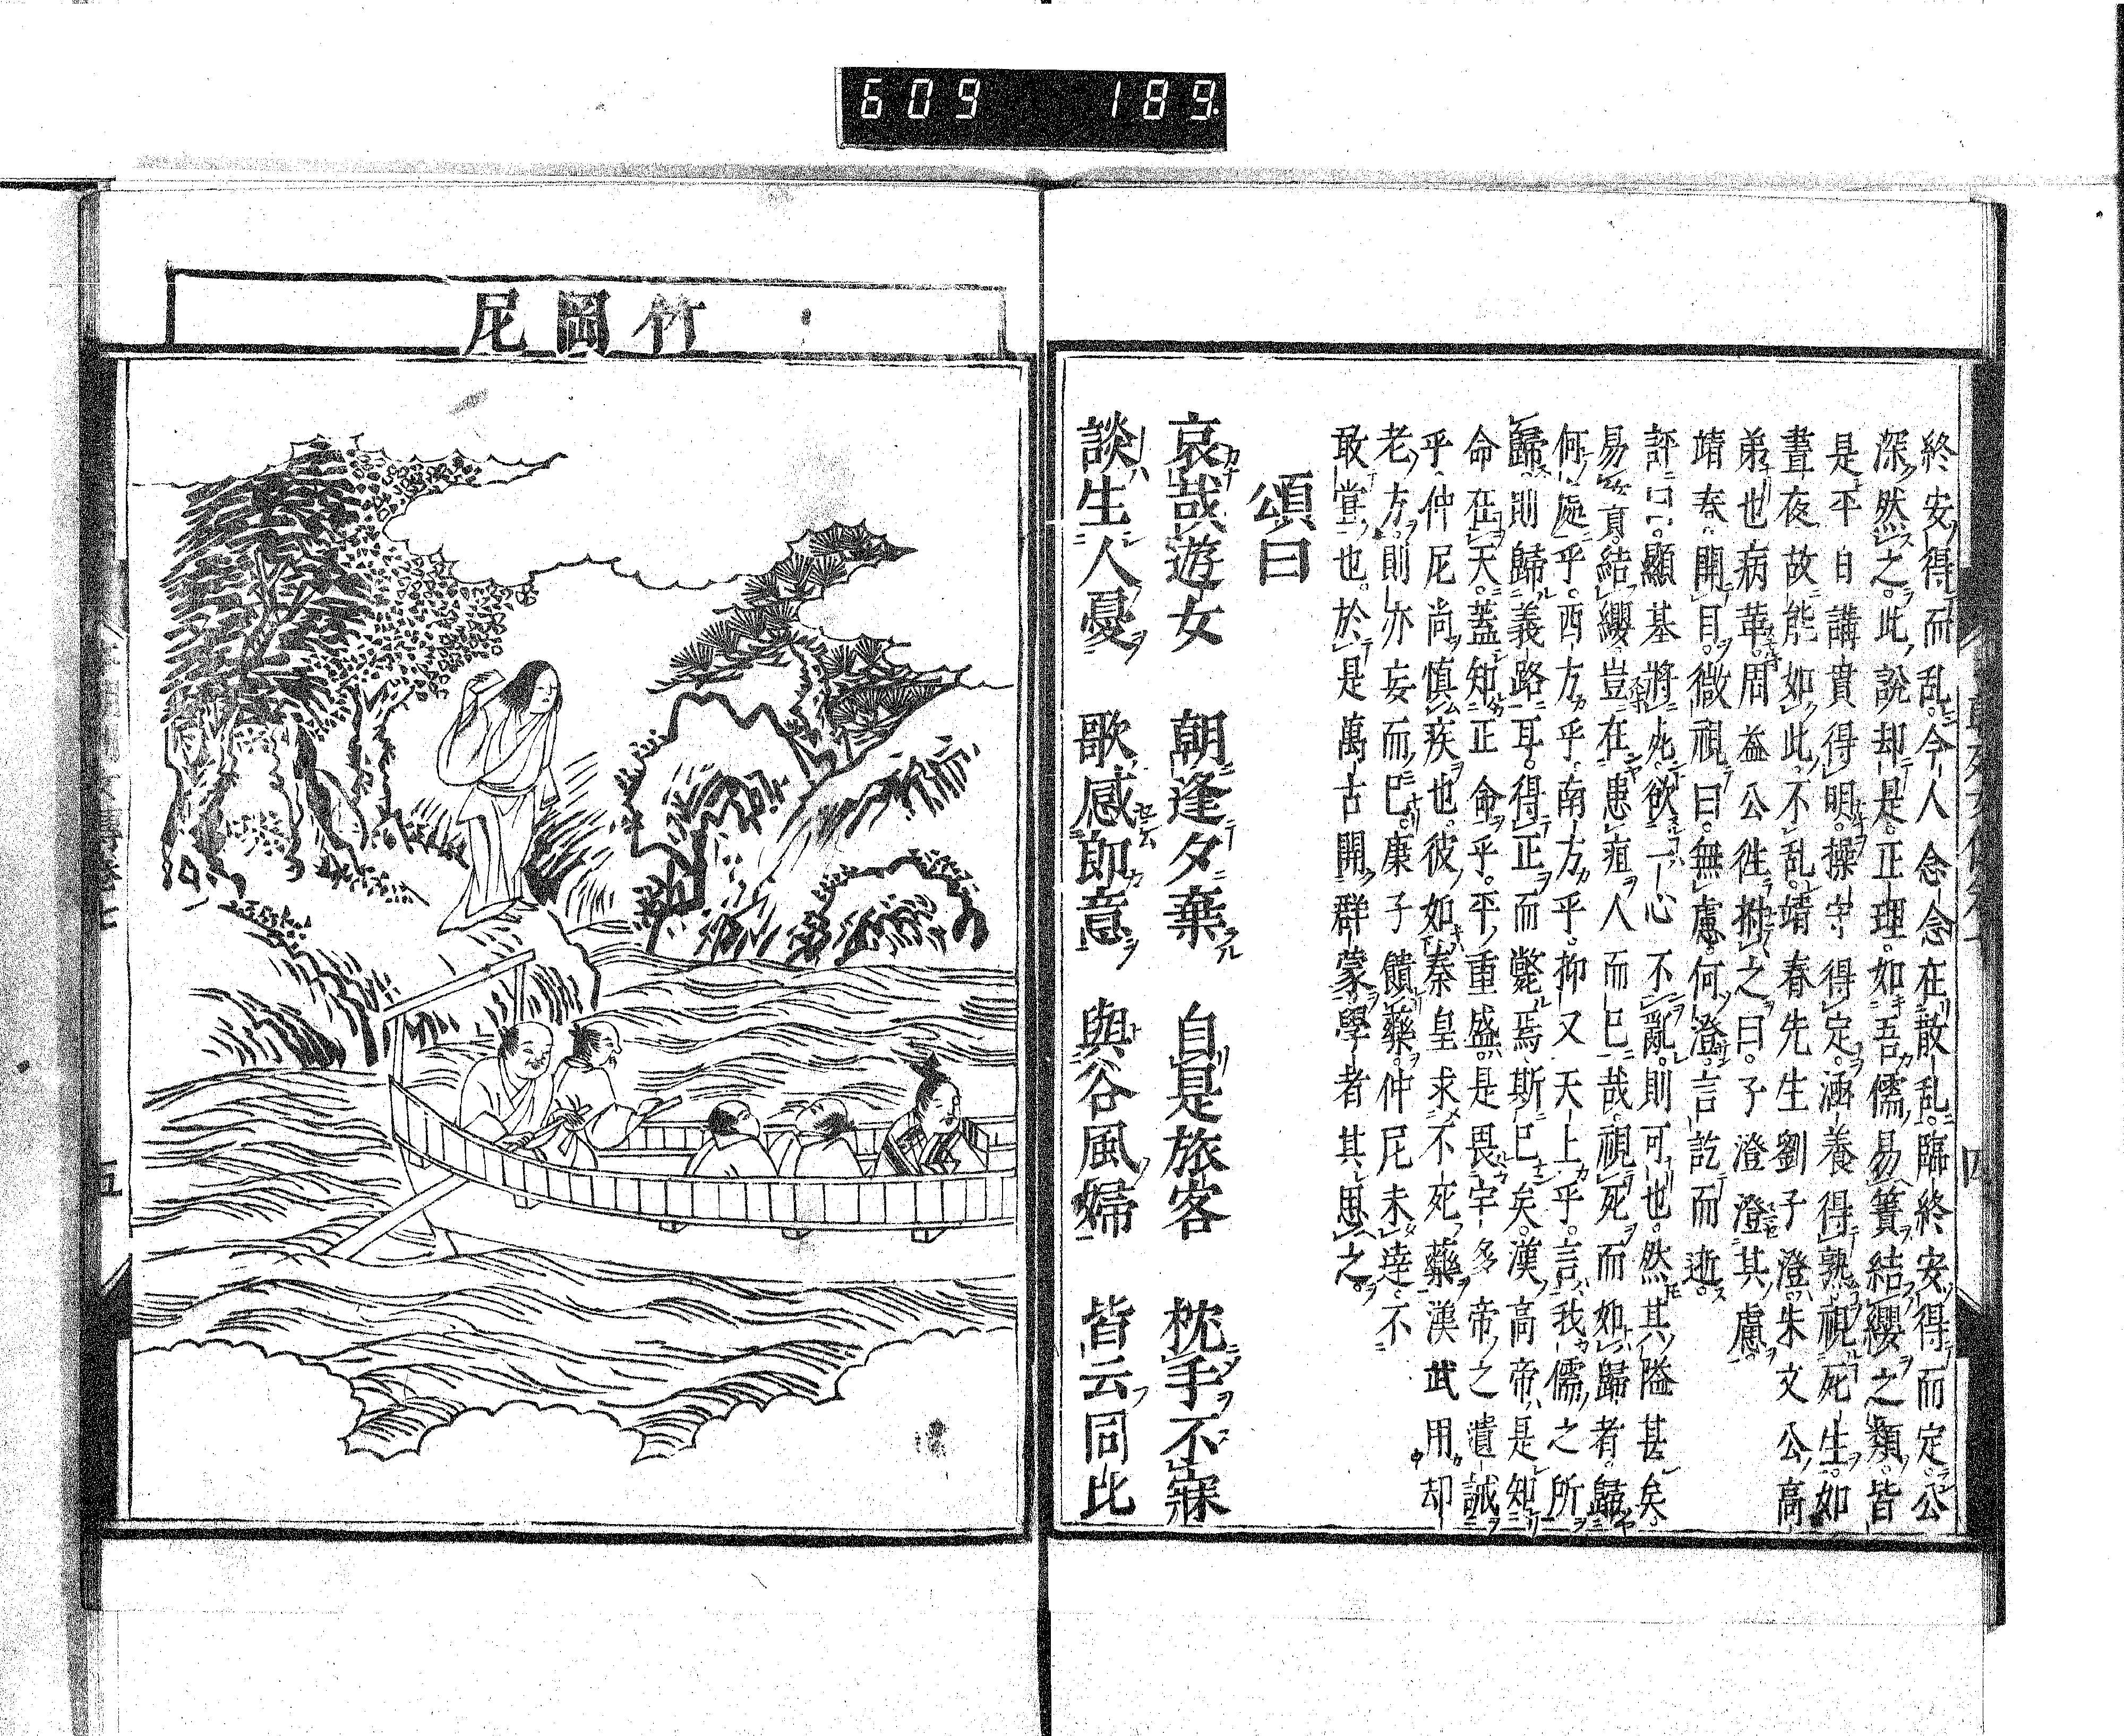 609 189
終安得而乱。今人念念在散乱。臨終安得而定。公
深然之。此說却是正理。如吾儒易簀結纓之類。皆
是平日講貫得明。操守得定。涵養得熟。視死生如
晝夜。故能如此不乱。靖春先生劉子澄。朱文公高
弟也。病革。周益公往拊之曰。子澄澄其慮。
靖春開目。微視曰。無慮何澄。言訖而逝。
評曰。顯基將死。欲一心不亂。則可也。然其隘甚矣。
易簀結纓。豈在患疽人而已哉。視死而如歸者。歸
何処乎。西方乎。南方乎。抑又天上乎。言我儒之所
歸則歸義路耳。得正而斃焉斯已矣。漢高帝是知
命在天。蓋知正命乎。平重盛是畏宇多帝之遺誡
乎。仲尼尚慎疾也。彼如秦皇求不死藥。漢武用却
老方。則亦妄而已。康子饋藥。仲尼未達。不
敢嘗也。於是萬古開群蒙。學者其思之。
頌曰
哀哉遊女 朝逢夕棄 自是旅客 枕手不寐
談生人憂 歌感郎意 與谷風婦 皆云同比
竹岡尼
五
四